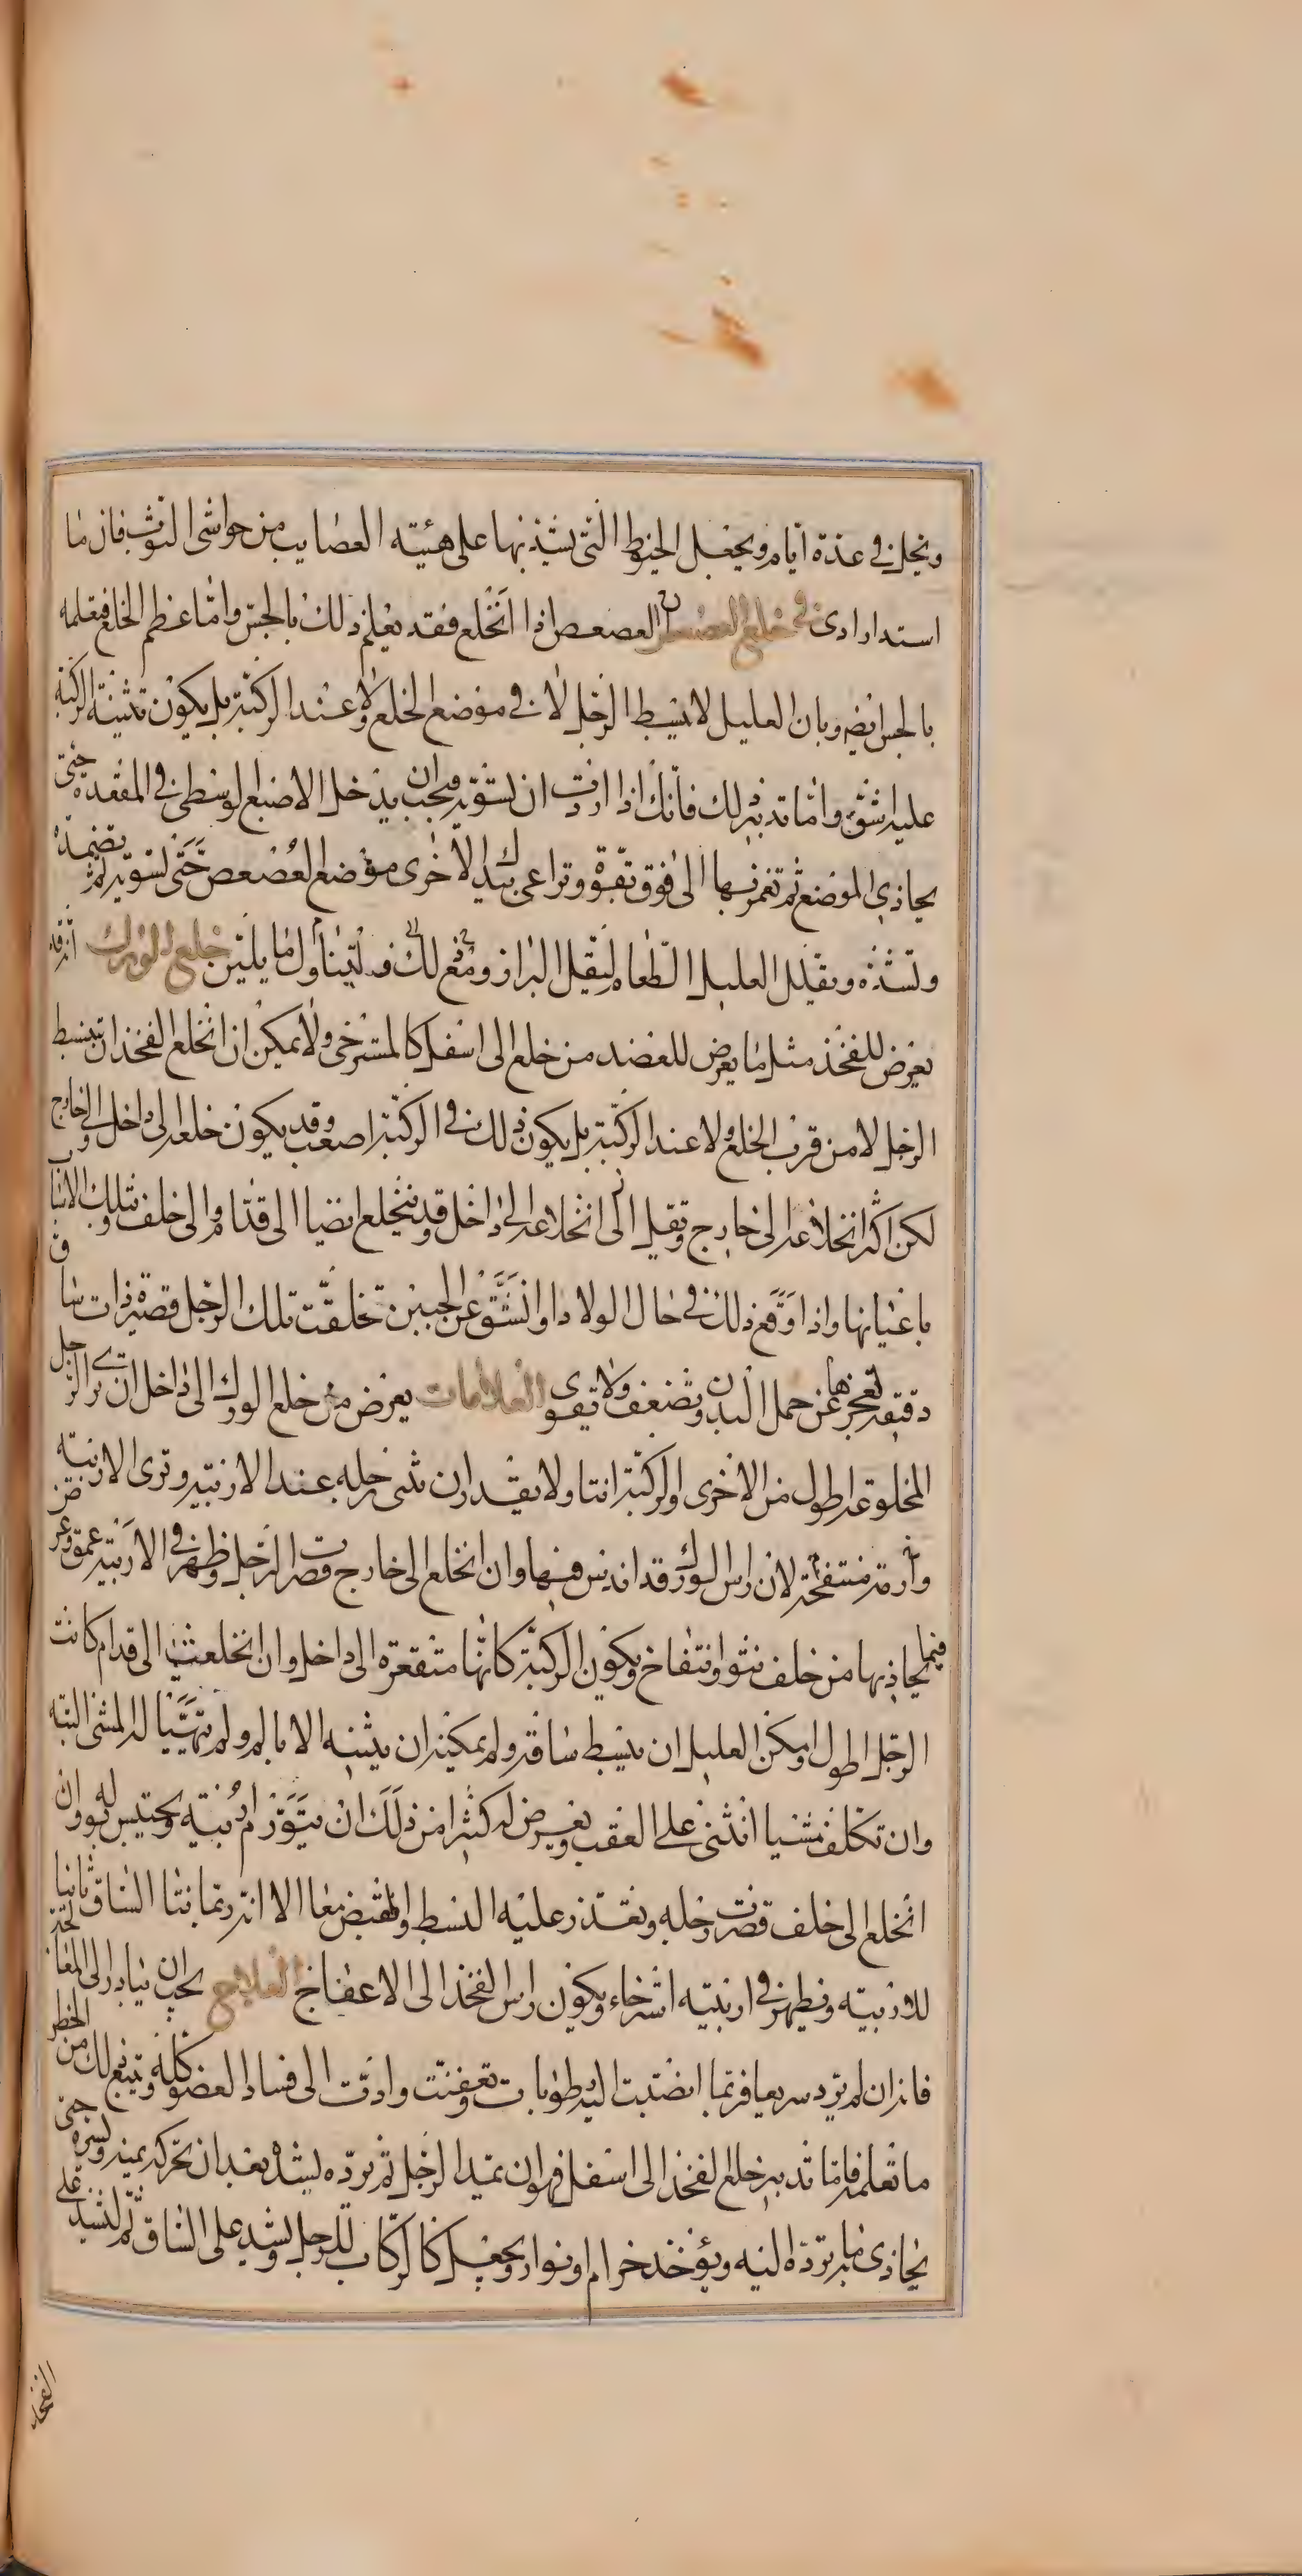 ويحل في عدة ايام ويجعل الخيوط التي يشد بها على هيئته العصايب من حواشى الثوب فان ما
استدار ادى في خلع العصعص ان العصعص اذا انخلع فقد يعلم ذلك بالجس واما عظم الخلع فيعلمه
بالجس ايضا وبان العليل لا يبسط الرجل لا في موضع الخلع ولا عند الركبة بل يكون تثنية الركبة
عليه اشق واما تدبير ذلك فانك اذا اردت ان تسويه فيجب ان يدخل الاصبع الوسطى في المقعدة حتى
يحاذي الموضع ثم تغمز بها الى فوق بقوة وتراعى بيدك الاخرى موضع العصعص حتى تسويه ثم تضمده
وتشده ويقلل العليل الطعام ليقل البراز ومع ذلك فليتناول ما يلين خلع الورك انه قد
يعرض للفخذ مثل ما يعرض للعضد من خلع الى اسفل كالمسترخى ولا يمكن ان انخلع الفخذ ان تبسط
الرجل لا من قرب الخلع ولا عند الركبة بل يكون ذلك في الركبة اصعب وقد يكون خلعه الى داخل والى خارج
لكن اكثر انخلاعه الى خارج وتقيل الى انخلاعه الى داخل وقد ينخلع ايضا الى قدام والى خلف وتلك الاسباب
باعيانها واذا وقع ذلك في حال الولاد او انشق عن الجبين تخلقت تلك الرجل قصيرة ذات ساق
دقيقة تعجزها عن حمل البدن وتضعف ولا تقوى العلامات يعرض من خلع الورك الى داخل ان ترى الرجل
المخلوعة اطول من الاخرى والركبة انتا ولا يقدر ان يثنى رجله عند الاربية وترى الاربية
وارمة منتفخة لان راس الورك قد اندس فيها وان انخلع الى خارج قصرت الرجل وظهر في الاربية عمق وعرض
فيما يحاذيها من خلف نتو وانتفاخ ويكون الركبة كانها متقعرة الى داخل وان انخلعت الى قدام كانت
الرجل اطول وامكن العليل ان يبسط ساقه ولم يمكنه ان يثنيه الا بالم ولم يتهيا له المشى البتة
وان تكلف مشيا انثنى على العقب ويعرض له كثيرا من ذلك ان يتورم اربيته ويحتبس بوله وان
انخلع الى خلف قصرت رجله وتعذر عليه البسط والقبض معا الا انه ربما ثنا الساق ثانيا
للاربية ويظهر في اربيته استرخاء ويكون راس الفخذ الى الاعفاج العلاج يجب ان يبادر الى المعالجة
فانه ان لم يرد سريعا فربما انصبت اليه رطوبات وتعفنت وادت الى فساد العضو كله ويتبع ذلك من الخطر
ما تعلمه فاما تدبير خلع الفخذ الى اسفل فهو ان يمد الرجل ثم يرده ليشد بعد ان تحركه يمنة ويسرة حتى
يحاذى ما يرده اليه ويؤخذ خزام او نوار ويجعل كالركاب للرجل ويشد على الساق ثم ليشد على
الفخذ